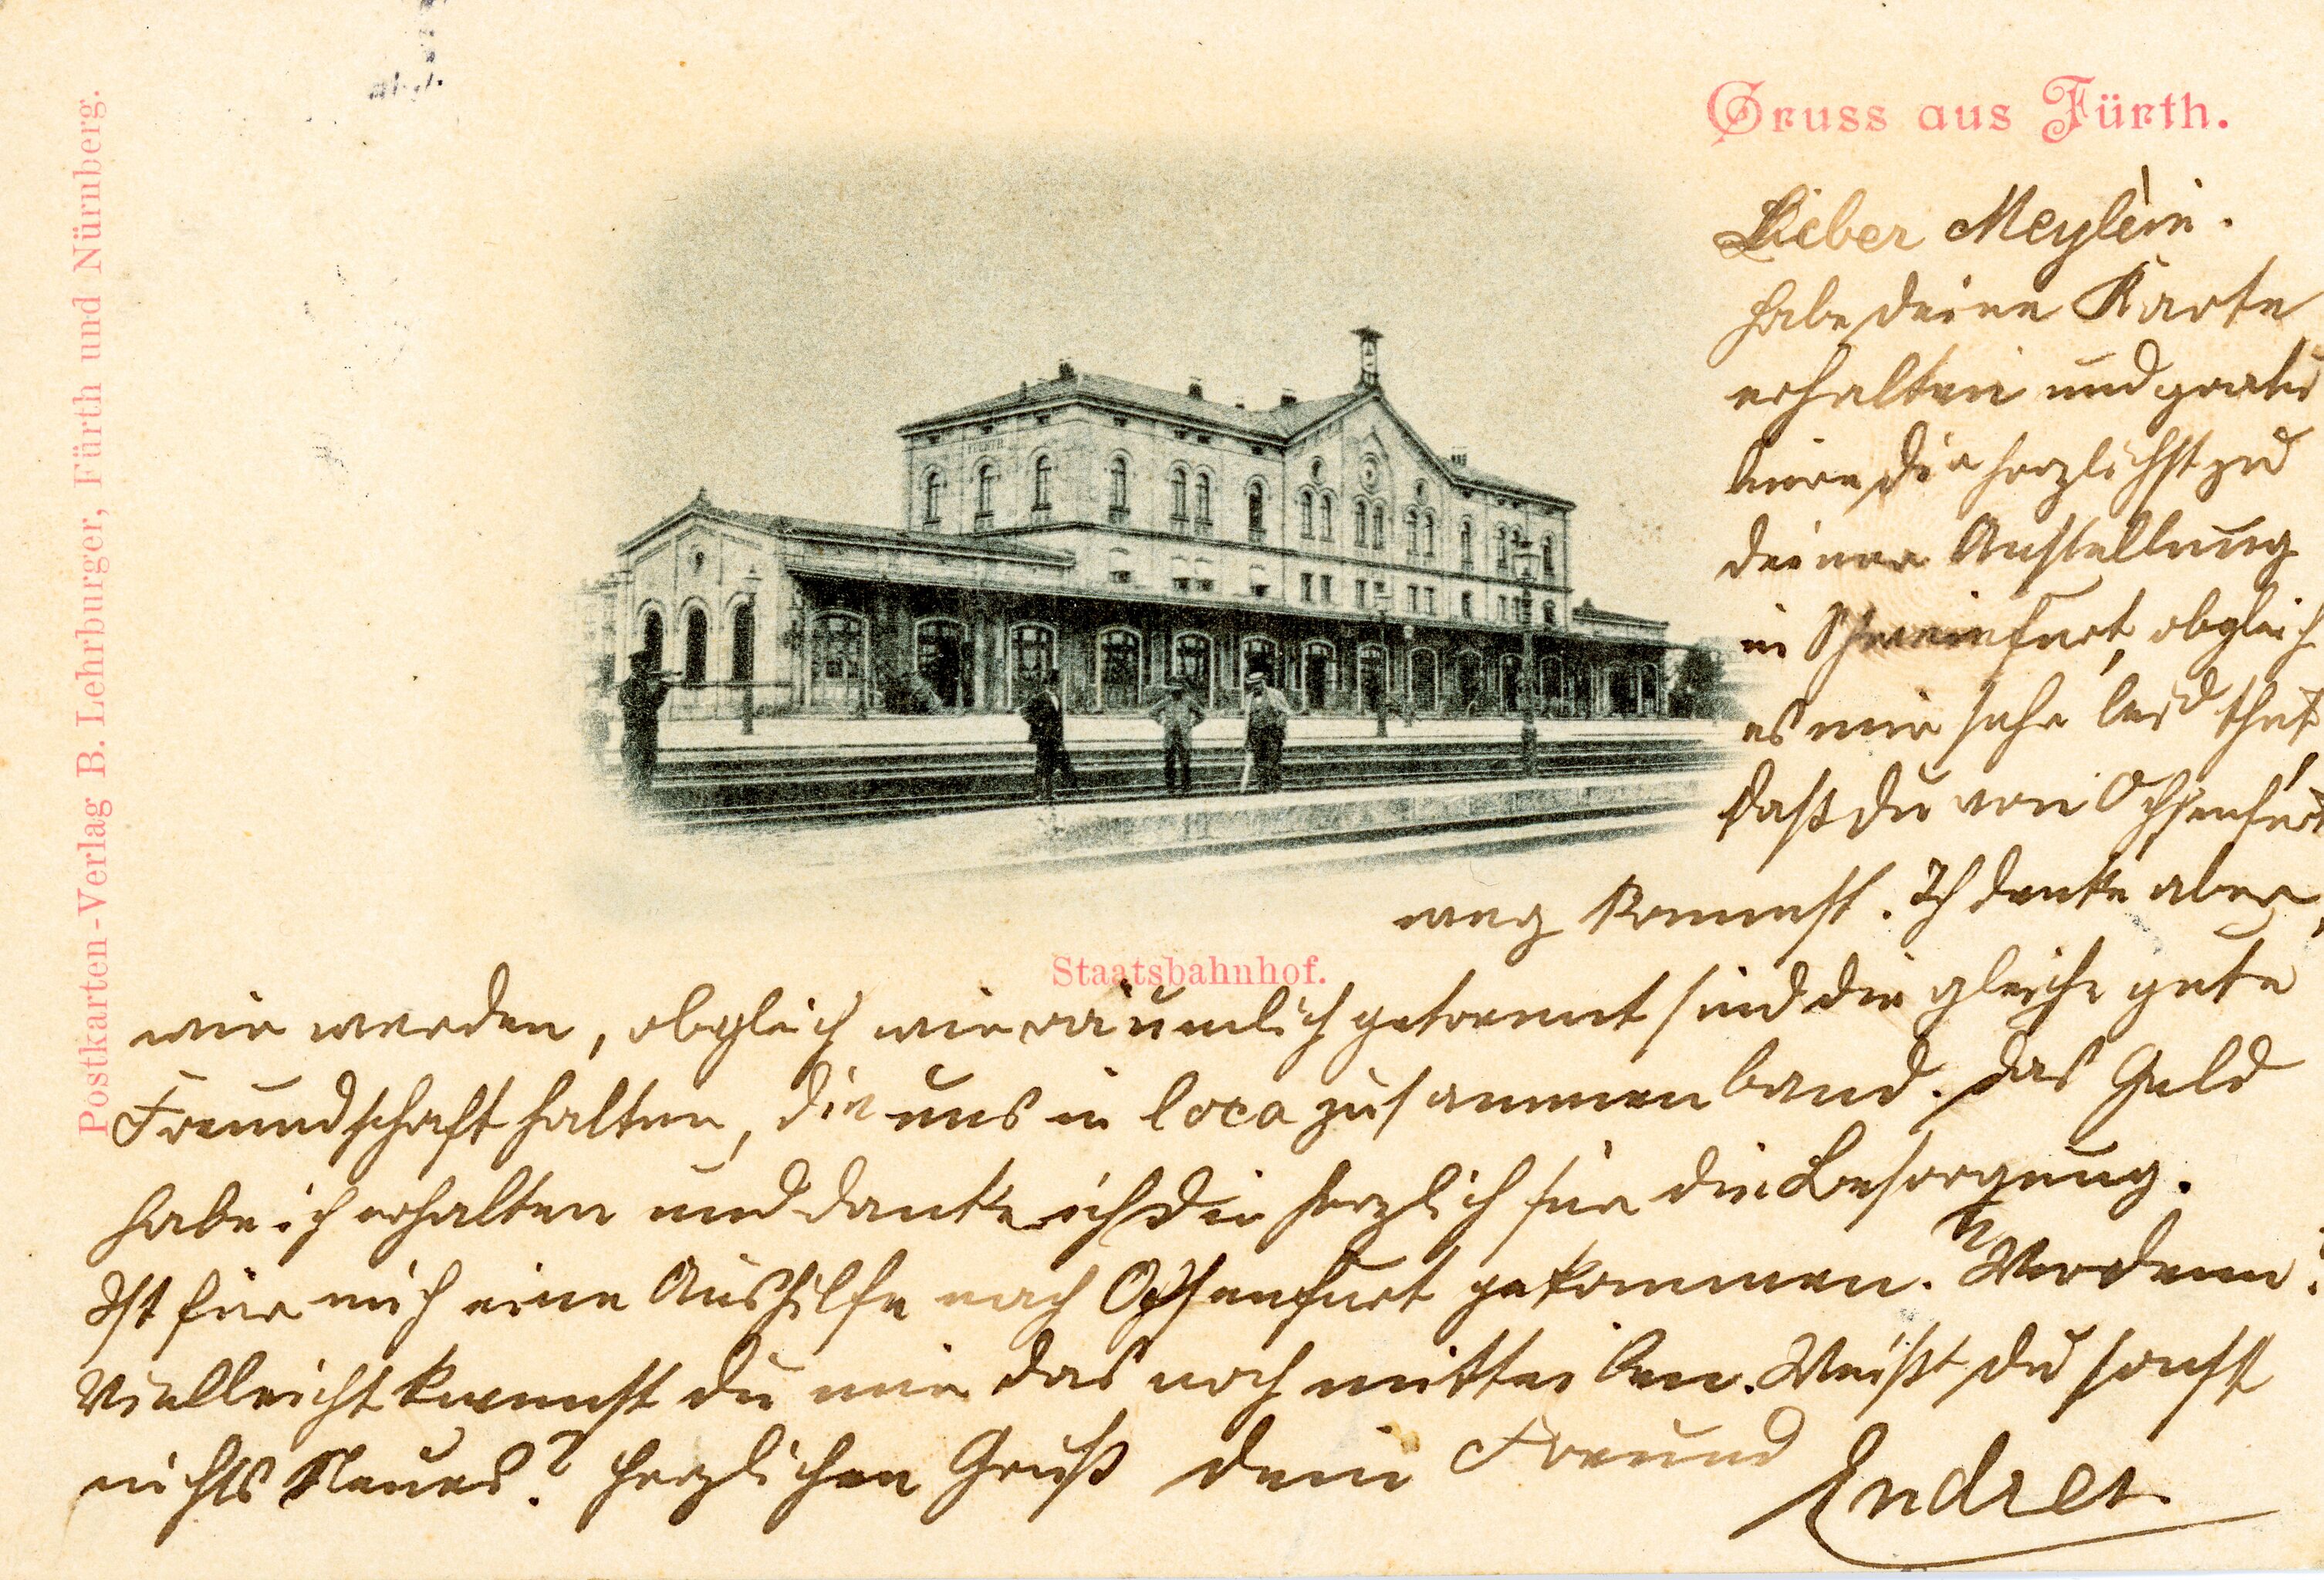 Postkarten-Verlag B. Lehrburger, Fürth und Nürnberg.
Gruss aus Fürth.
Lieber Meylein.
habe deine Karte
erhalten und gratu
liere dir herzlichst zu
deiner Anstellung
in Schweinfurt, obgleich
es mir sehr leid thut,
daß du von Ochsenfurt
weg kommst. Ich denke aber,
Staatsbahnhof.
wir werden, obgleich wir räumlich getrennt sind die gleiche gute
Freundschaft halten, die uns in loco zusammen band. Das Geld
habe ich erhalten und danke ich dir herzlich für die Besorgung.
Ist für mich eine Aushilfe nach Ochsenfurt gekommen. Wer denn?
Vielleicht kannst du mir das noch mitteilen. Weißt du sonst
nichts Neues? Herzlichen Gruß dein Freund
Endres